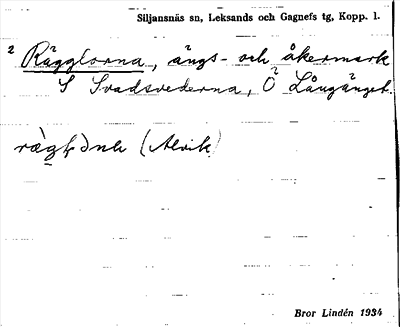 Siljansnäs sn, Leksands och Gagnefs tg, Kopp. l.
2 Rägglorna, ängs- och åkermark
S Svadsvederna, Ö Långänget.
(Alvik)
Bror Lindén 1934